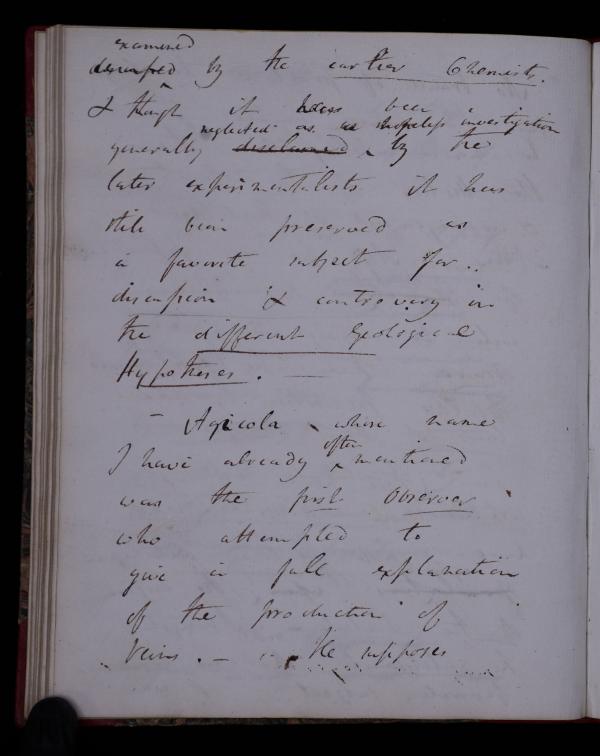 examined
discussed by the earlier Chemists.
& though it has been
neglected as a hopeless investigation
generally disclaimed by the
later experimentalists it has
still been preserved as
a favorite subject for
discussion & controversy in
the different Geological
Hypotheses. —
– Agricola whose name
often
I have already mentioned
was the first Observer
who attempted to
give a full explanation
of the production of
Veins. — He supposes